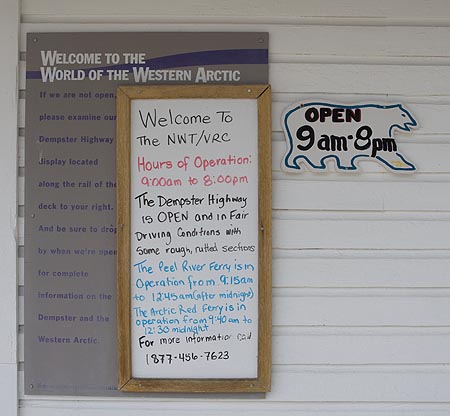 WELCOME TO THE
WORLD OF THE WESTERN ARCTIC
If we are not open,
please examine our
Dempster Highway
display located
along the rail of the
deck to your right.
And be sure to drop
by when we're open
for complete
information on the
Dempster and the
Western Arctic.
Welcome To
The NWT/VRC
Hours of Operation:
9:00am to 8:00pm
The Dempster Highway
is OPEN and in Fair
Driving Conditions with
Some rough, rutted sections
The Peel River Ferry is in
Operation from 9:15am
to 12:45am (after midnight)
The Arctic Red Ferry is in
operation from 9:40 am to
12:30 midnight
For more information call
1877-456-7623
OPEN
9am-8pm